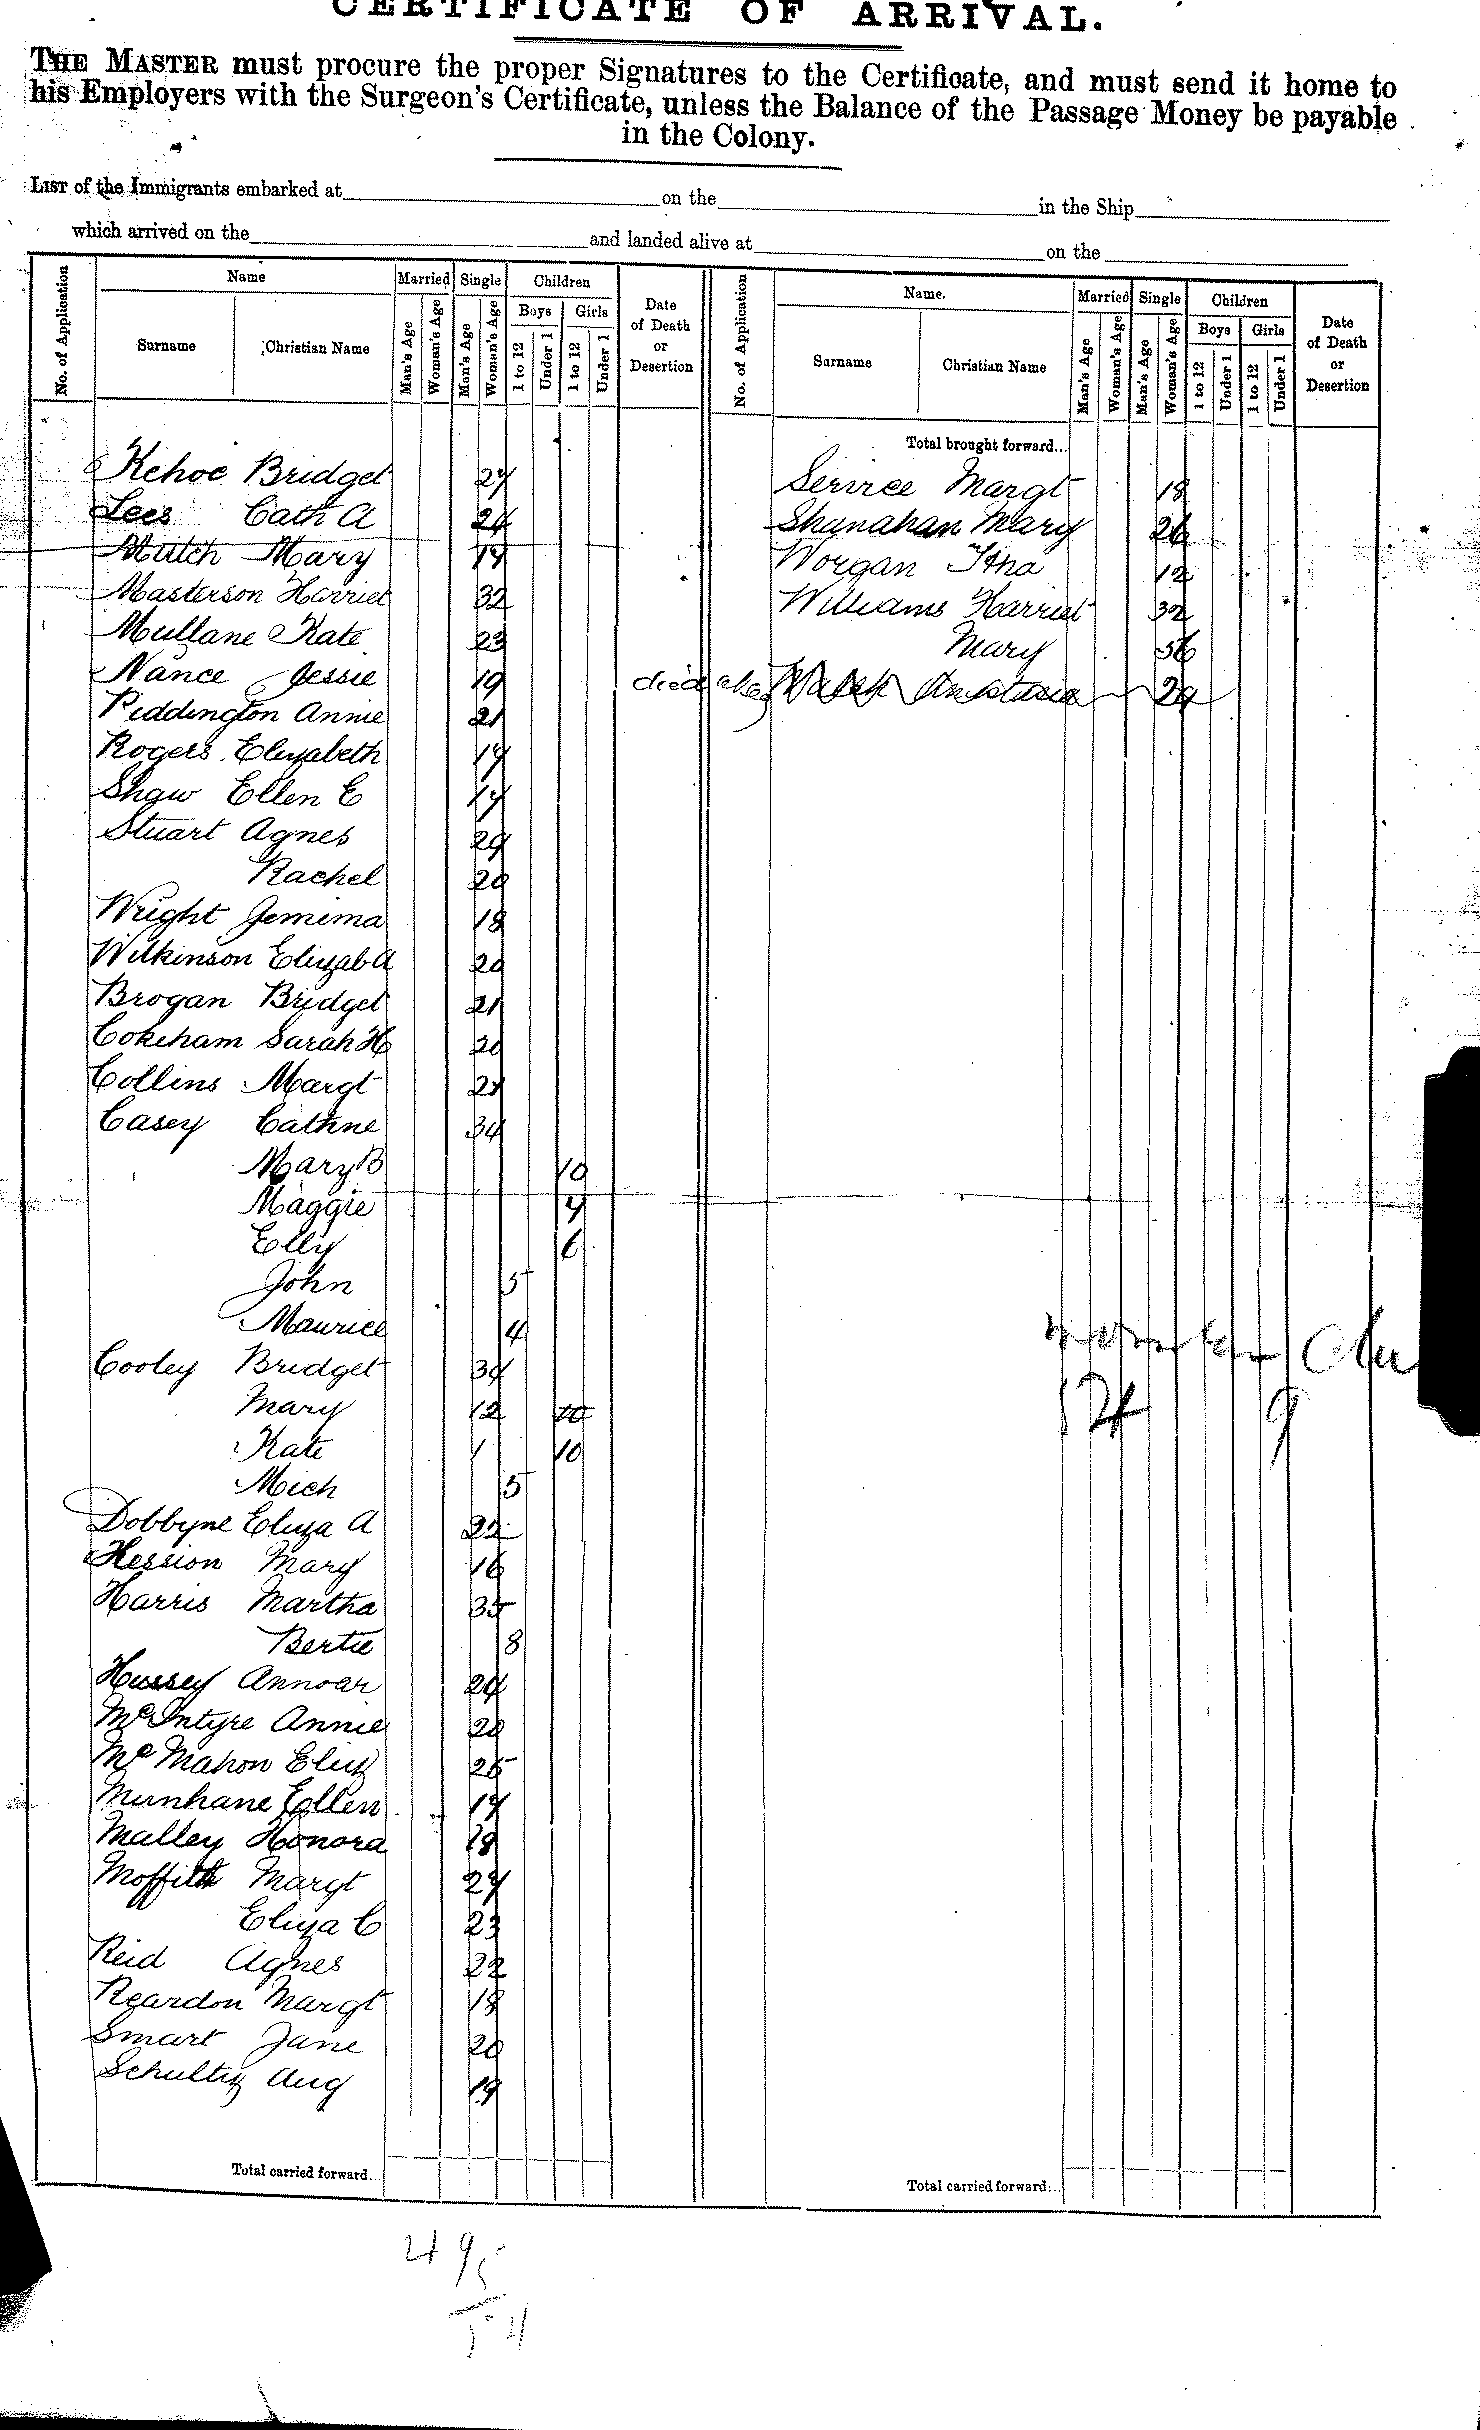 CERTIFICATE OF ARRIVAL.
THE MASTER must procure the proper Signatures to the Certificate, and must send it home to
his Employers with the Surgeon's Certificate, unless the Balance of the Passage Money be payable
in the Colony.
LIST of the Immigrants embarked at on the in the Ship
which arrived on the and landed alive at on the
No. of Application
Name
Surname
Christian Name
Married
Man's Age
Woman's Age
Single
Man's Age
Woman's Age
Children
Boys
1 to 12
Under 1
Girls
1 to 12
Under 1
Date of Death or Desertion
Kehoe Bridget 27
Lees Cath A 24
Mutch Mary 19
Masterson Harriet 32
Mullane Kate 23
Nance Jessie 19
Piddington Annie 21
Rogers Elizabeth 17
Shaw Ellen E 17
Stuart Agnes 29
Rachel 20
Wright Jemima 18
Wilkinson Elizab A 20
Brogan Bridget 21
Cokeham Sarah H 20
Collins Margt 21
Casey Cathne 34
Mary B 10
Maggie 7
Elly 6
John 5
Maurice 4
Cooley Bridget 34
Mary 12 10
Kate 1 10
Mich 5
Dobbyne Eliza A 22
Hession Mary 16
Harris Martha 35
Bertie 8
Hussey Annoar 24
McIntyre Annie 20
McMahon Eliz 25
Munhane Ellen 17
Malley Honora 18
Moffitt Margt 27
Eliza C 23
Reid Agnes 22
Reardon Margt 18
Smart Jane 20
Schultz Aug 19
Total carried forward...
No. of Application
Name.
Surname
Christian Name
Married
Man's Age
Woman's Age
Single
Man's Age
Woman's Age
Children
Boys
1 to 12
Under 1
Girls
1 to 12
Under 1
Date of Death or Desertion
Total brought forward...
Service Margt 18
Shunahan Mary 26
Worgan Itha 12
Williams Harriet 32
Mary 56
died Anastasia 29
54 9
Total carried forward...
49
5
54